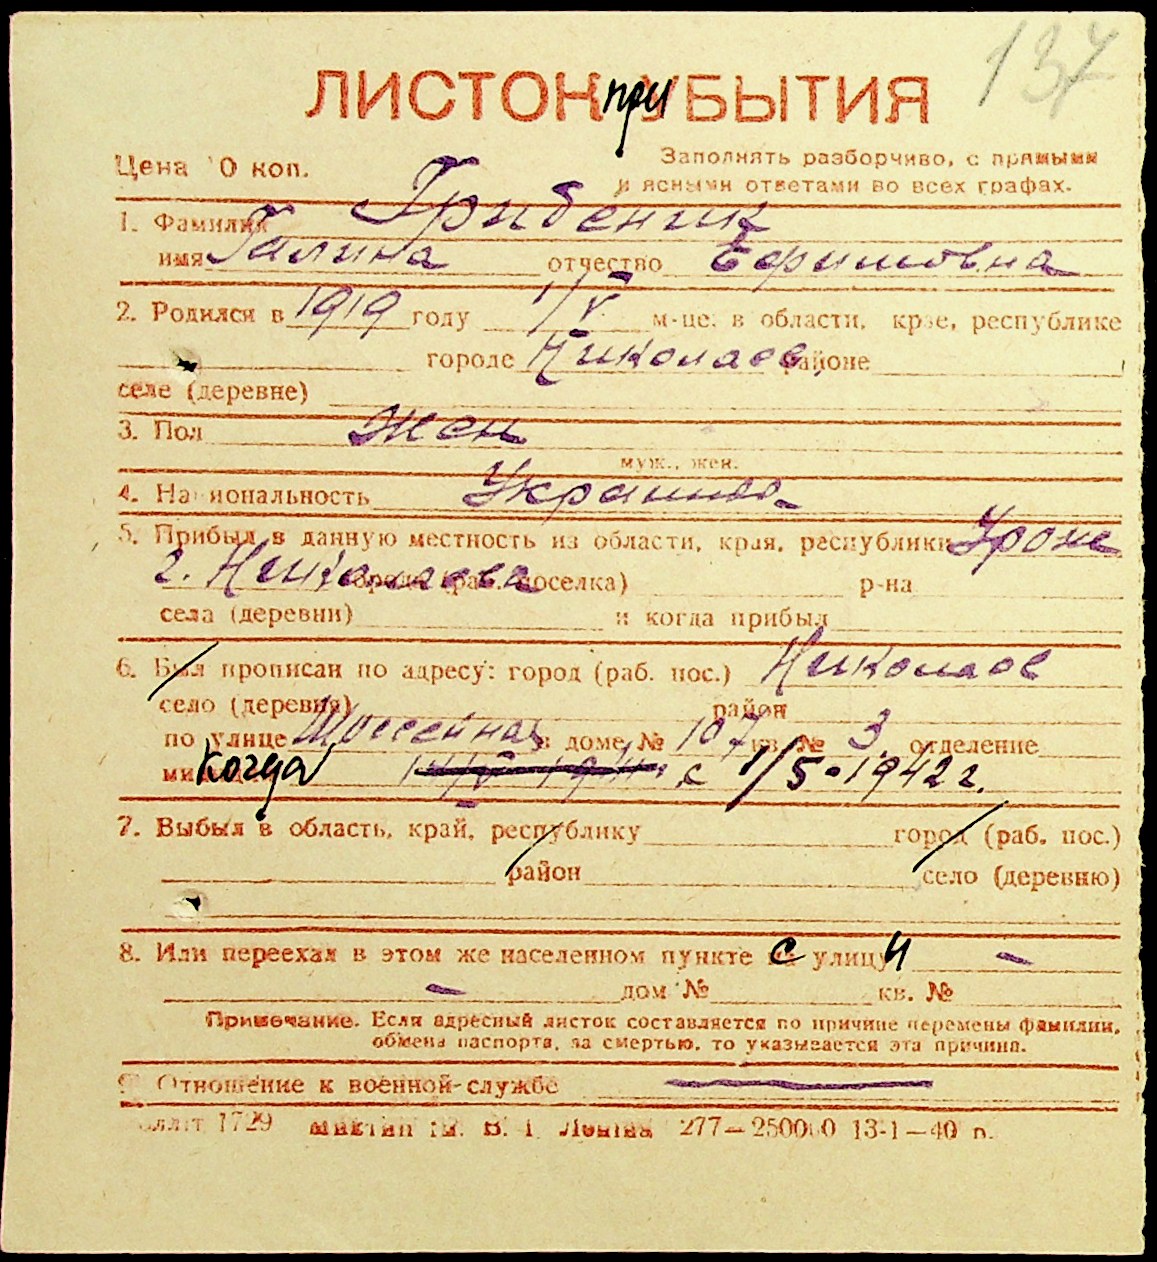 137
ЛИСТОК при УБЫТИЯ
Цена 10 коп.
Заполнять разборчиво, с прямыми
и ясными ответами во всех графах.
1. Фамилия Грибеник
имя Галина отчество Ефимовна
2. Родился в 1919 году 1/V м-це, в области, крае, республике
городе Николаев районе
селе (деревне)
3. Пол жен
муж., жен.
4. Национальность Украинка
5. Прибыл в данную местность из области, края, республики
г. Николаева города (раб. поселка) р-на
села (деревни) и когда прибыл
6. Был прописан по адресу: город (раб. пос.) Николаев
село (деревня) район
по улице Шоссейная в доме № 107 кв. № 3 отделение
милиции когда с 1/5-1942 г.
7. Выбыл в область, край, республику город (раб. пос.)
район село (деревню)
8. Или переехал в этом же населенном пункте с улицы —
— дом № кв. №
Примечание. Если адресный листок составляется по причине перемены фамилии,
обмена паспорта, за смертью, то указывается эта причина.
9. Отношение к военной службе —
1729 им. В. И. Ленина 277—250000 13-1—40 г.